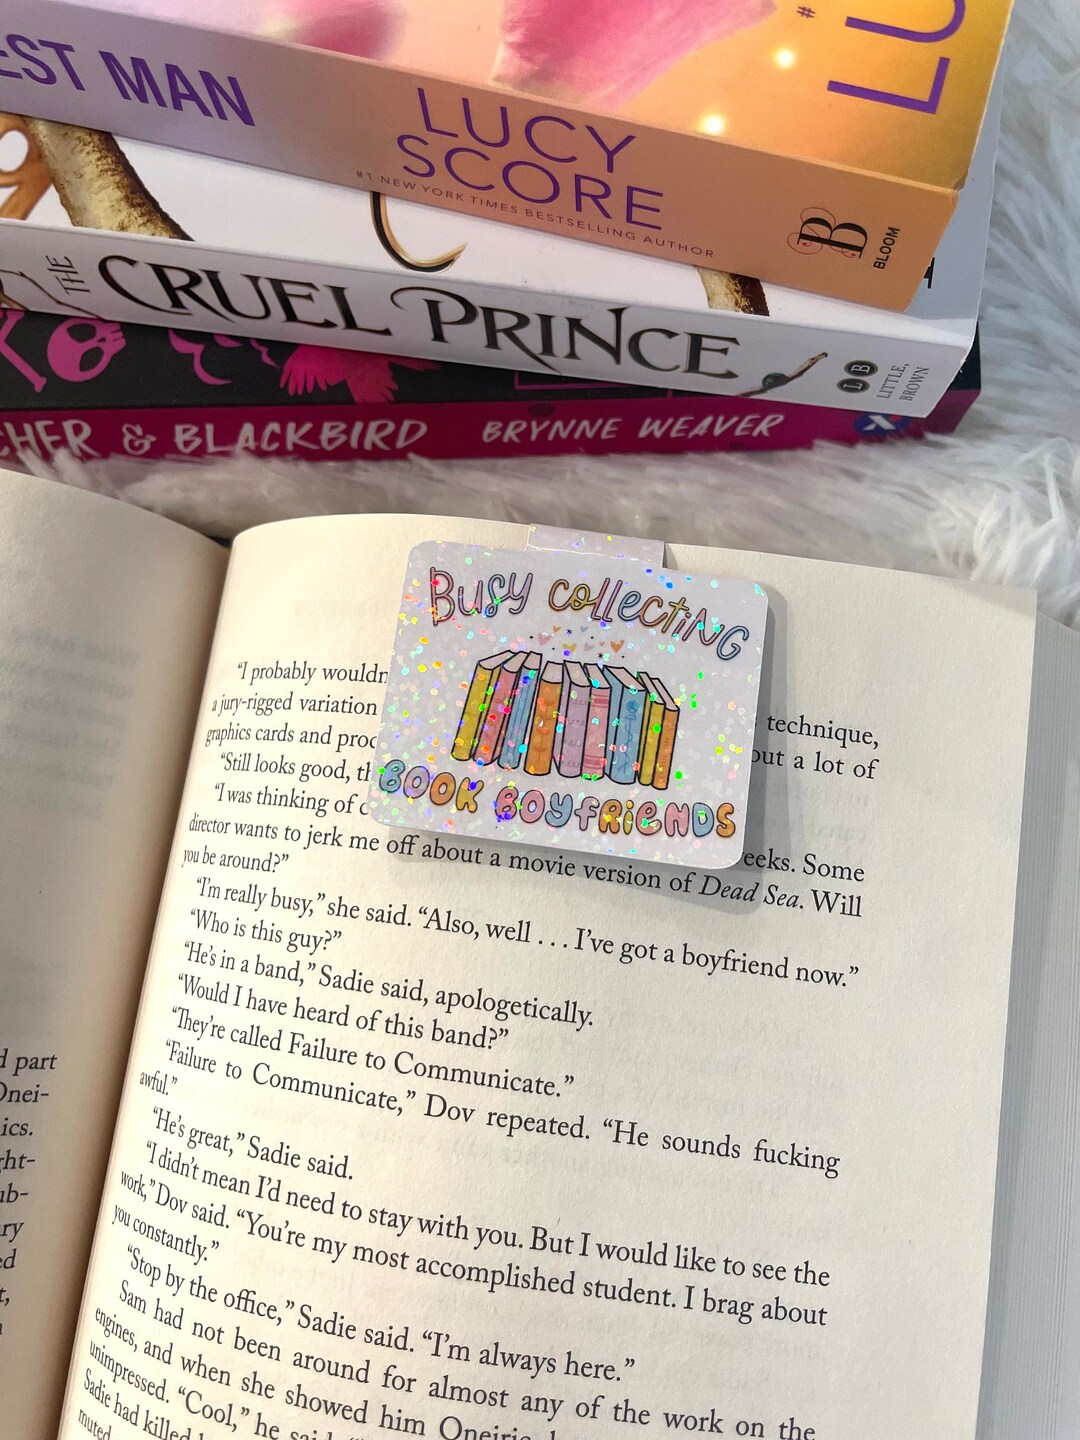 #
LU
EST MAN
LUCY
SCORE
#1 NEW YORK TIMES BESTSELLING AUTHOR
B
BLOOM
THE
CRUEL PRINCE
L B
LITTLE,
BROWN
CHER & BLACKBIRD BRYNNE WEAVER
Busy collecting
BOOK BOYfRiENDS
"I probably wouldn technique,
a jury-rigged variation out a lot of
graphics cards and proc
"Still looks good, th
"I was thinking of c eeks. Some
director wants to jerk me off about a movie version of Dead Sea. Will
you be around?"
"I'm really busy," she said. "Also, well . . . I've got a boyfriend now."
"Who is this guy?"
"He's in a band," Sadie said, apologetically.
"Would I have heard of this band?"
"They're called Failure to Communicate."
"Failure to Communicate," Dov repeated. "He sounds fucking
awful."
"He's great," Sadie said.
"I didn't mean I'd need to stay with you. But I would like to see the
work," Dov said. "You're my most accomplished student. I brag about
you constantly."
"Stop by the office," Sadie said. "I'm always here."
Sam had not been around for almost any of the work on the
engines, and when she showed him Oneiric
unimpressed. "Cool," he said.
Sadie had killed
muted
d part
Onei-
ics.
ght-
ub-
ry
ed
t,